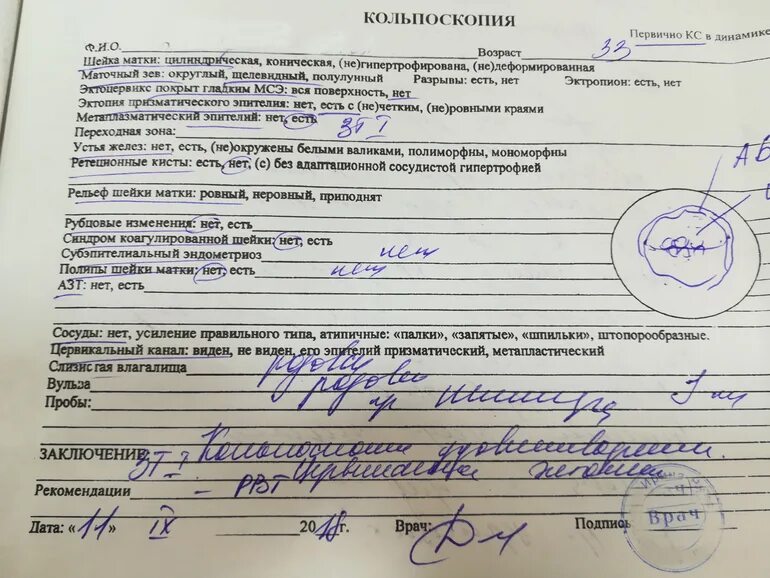 КОЛЬПОСКОПИЯ
Первично КС в динамике
Ф.И.О. Возраст 33
Шейка матки: цилиндрическая, коническая, (не)гипертрофирована, (не)деформированная
Маточный зев: округлый, щелевидный, полулунный Разрывы: есть, нет Эктропион: есть, нет
Эктоцервикс покрыт гладким МСЭ: вся поверхность, нет
Эктопия призматического эпителия: нет, есть с (не)четким, (не)ровными краями
Метаплазматический эпителий: нет, есть
Переходная зона: ЗТ I
Устья желез: нет, есть, (не)окружены белыми валиками, полиморфны, мономорфны
Ретенционные кисты: есть, нет, (с) без адаптационной сосудистой гипертрофией
Рельеф шейки матки: ровный, неровный, приподнят
Рубцовые изменения: нет, есть
Синдром коагулированной шейки: нет, есть
Субэпителиальный эндометриоз нет
Полипы шейки матки: нет, есть нет
АЗТ: нет, есть
Сосуды: нет, усиление правильного типа, атипичные: «палки», «запятые», «шпильки», штопорообразные.
Цервикальный канал: виден, не виден, его эпителий призматический, метапластический
Слизистая влагалища розовая
Вульва розовая
Пробы: пр Шиллера
ЗАКЛЮЧЕНИЕ: Кольпоскопия удовлетворит.
ЗТ I
Рекомендации - РВТ
Дата: «11» IX 2018г. Врач: Подпись
Врач